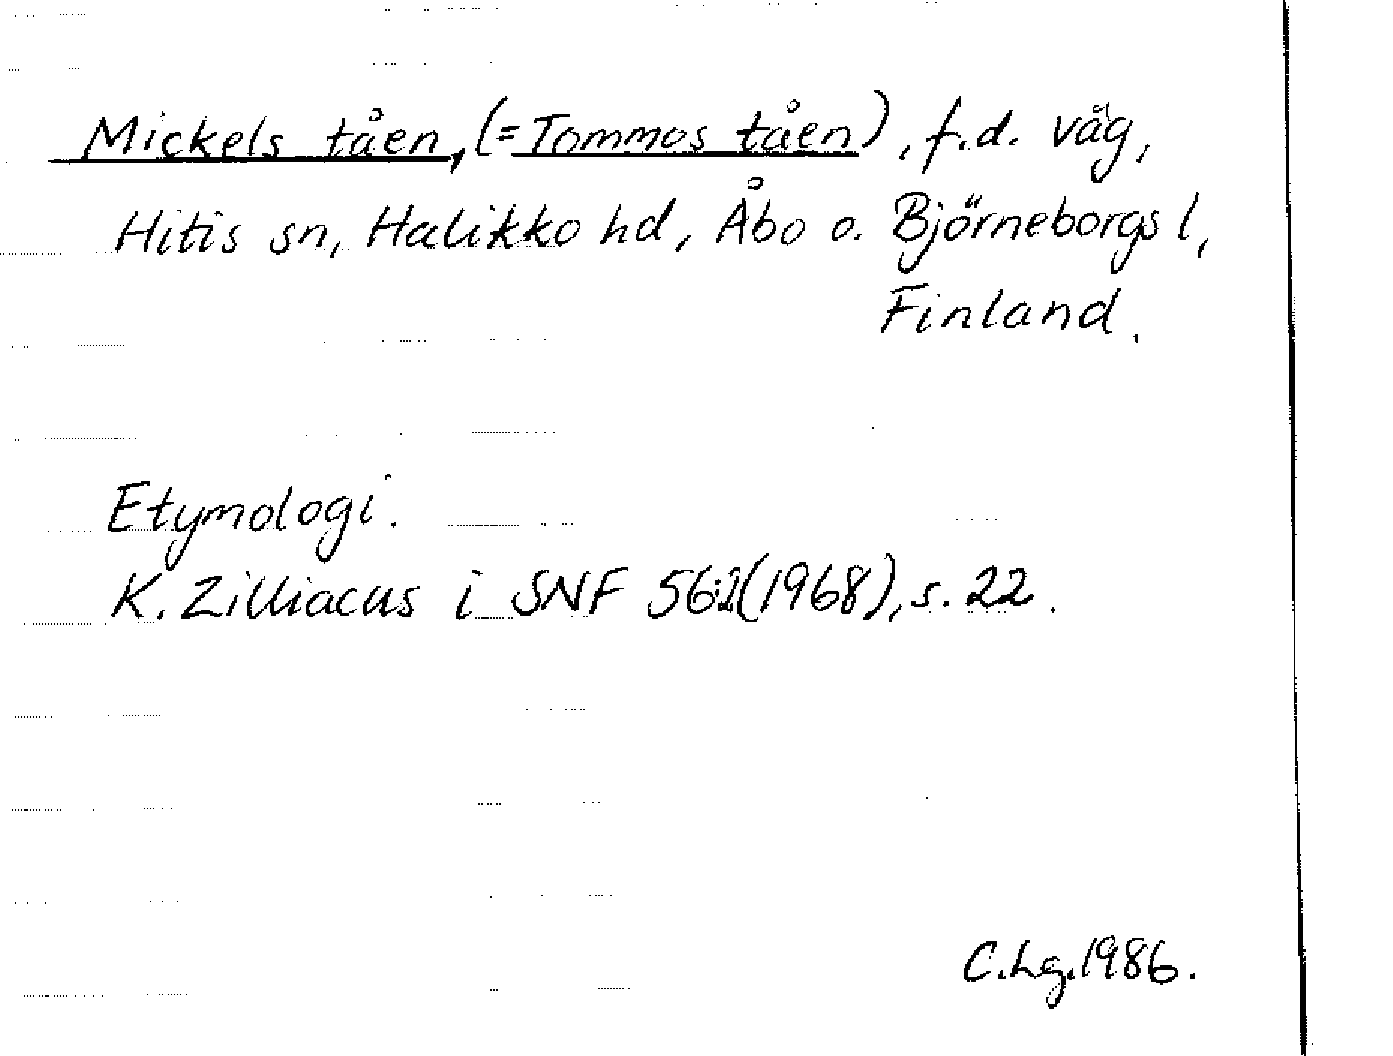 Mickels tåen, (= Tommos tåen), f.d. väg,
Hitis sn, Halikko hd, Åbo o. Björneborgs l,
Finland.
Etymologi.
K. Zilliacus i SNF 56:2(1968), s. 22.
C.Lg.1986.